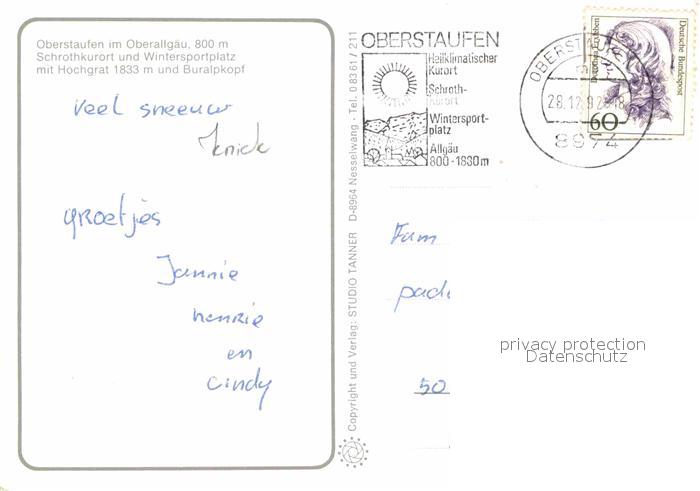 Oberstaufen im Oberallgäu, 800 m
Schrothkurort und Wintersportplatz
mit Hochgrat 1833 m und Buralpkopf
veel sneeuw
groetjes
Jannie
henrie
en
Cindy
Copyright und Verlag: STUDIO TANNER D-8964 Nesselwang · Tel. 0 83 61 / 211
OBERSTAUFEN
Heilklimatischer
Kurort
Schroth-
kurort
Wintersport-
platz
Allgäu
800-1830m
OBERSTAUFEN
28.12.92-18
8974
Deutsche Bundespost
60
Fam
50
privacy protection
Datenschutz